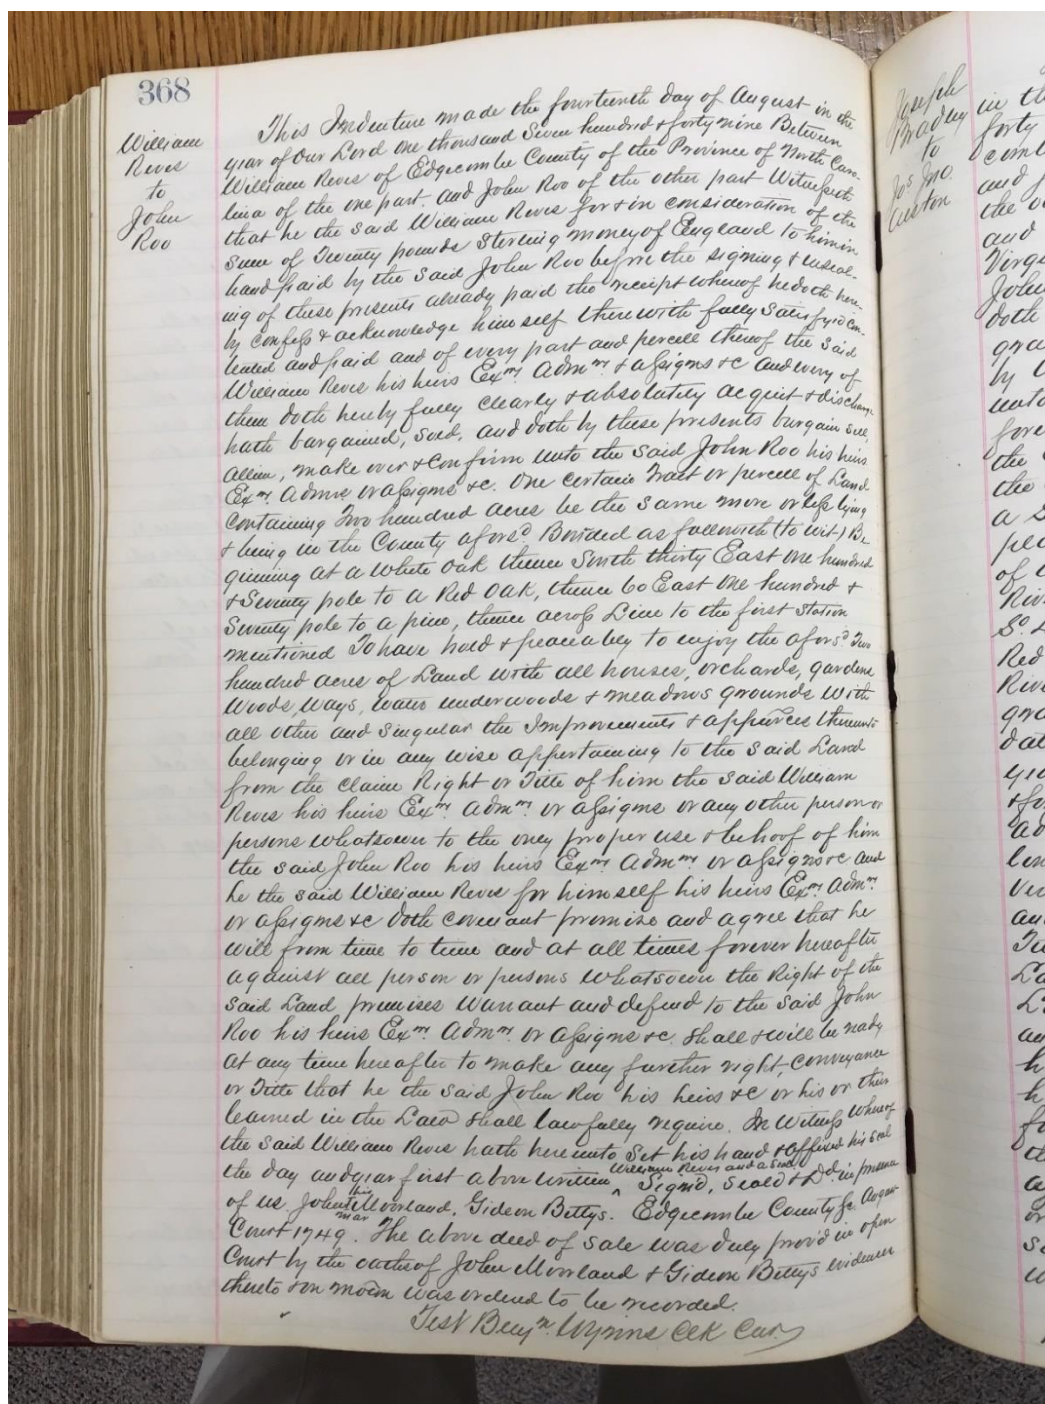 368
William
Reves
to
John
Roo
This Indenture made the fourteenth day of August in the
year of Our Lord one thousand Seven hundred & forty nine Between
William Reves of Edgecombe County of the Province of North Caro-
lina of the one part. and John Roo of the other part Witnesseth
that he the said William Reves for & in consideration of the
sum of Twenty pounds Sterling money of England to him in
hand paid by the said John Roo before the signing & enseal-
ing of these presents already paid the receipt whereof he doth here-
by confess & acknowledge himself therewith fully Satisfyd con-
tented and paid and of every part and percell thereof the said
William Reves his heirs Exrs Admrs & assigns &c and every of
them doth hereby fully clearly & absolutely acquit & discharge
hath bargained, sold, and doth by these presents bargain sell,
allien, make over & confirm unto the said John Roo his heirs
Exrs Admrs or assigns &c. One certain Tract or percell of Land
containing Two hundred acres be the same more or less lying
& being in the County aforsd. Bounded as followeth (to wit) Be-
ginning at a white oak thence South thirty East one hundred
& Seventy pole to a Red Oak, thence 60 East one hundred &
Seventy pole to a pine, thence across Line to the first Station
mentioned To have hold & peaceabley to enjoy the aforsd Two
hundred acres of Land with all houses, orchards, gardens
Woods, Ways, waters underwoods & meadows grounds with
all other and singular the Improvements & appurces thereunto
belonging or in any wise appertaining to the said Land
from the claim Right or Title of him the said William
Reves his heirs Exrs Admrs or assigns or any other person or
persons whatsoever to the only proper use & behoof of him
the said John Roo his heirs Exrs Admrs or assigns &c and
he the said William Reves for himself his heirs Exrs Admrs
or assigns &c doth covenant promise and agree that he
will from time to time and at all times forever hereafter
against all person or persons whatsoever the Right of the
said Land premises warrant and defend to the said John
Roo his heirs Exrs Admrs or assigns &c. shall & will be ready
at any time hereafter to make any further right, conveyance
or Title that he the said John Roo his heirs &c or his or their
learned in the Law shall lawfully require. In Witness whereof
the said William Reves hath hereunto Set his hand & affixed his seal
William Reves and a Seal
the day and year first above written ^ Signd, Seald & Dd. in presence
of us John his Moorland, Gideon Bettys. Edgecombe County Sc. August
mar
Court 1749. The above deed of Sale was duly prov'd in open
Court by the oaths of John Moorland & Gideon Bettys evidences
thereto & on motn was ordered to be recorded.
Test Benjn. Wynns Clk Cur
Joseph
Bradley
to
Jos Jno.
Alston
in th
forty
comb
and
the o
and
Virg
John
doth
gra
by
unto
fore
the
the
a
of
Riv
So.
Red
Rive
gra
dat